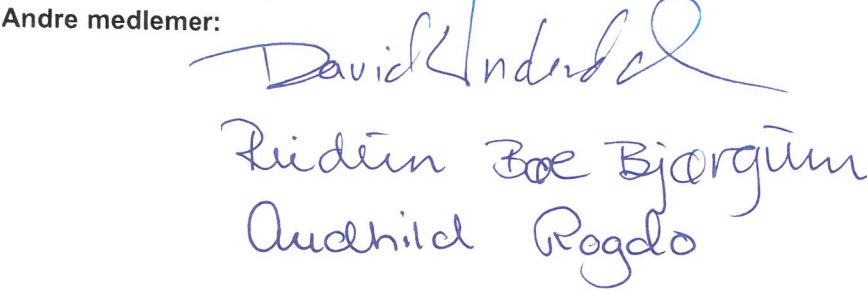 Andre medlemer:
David Underdal
Reidun Bøe Bjørgum
Audhild Rogdo